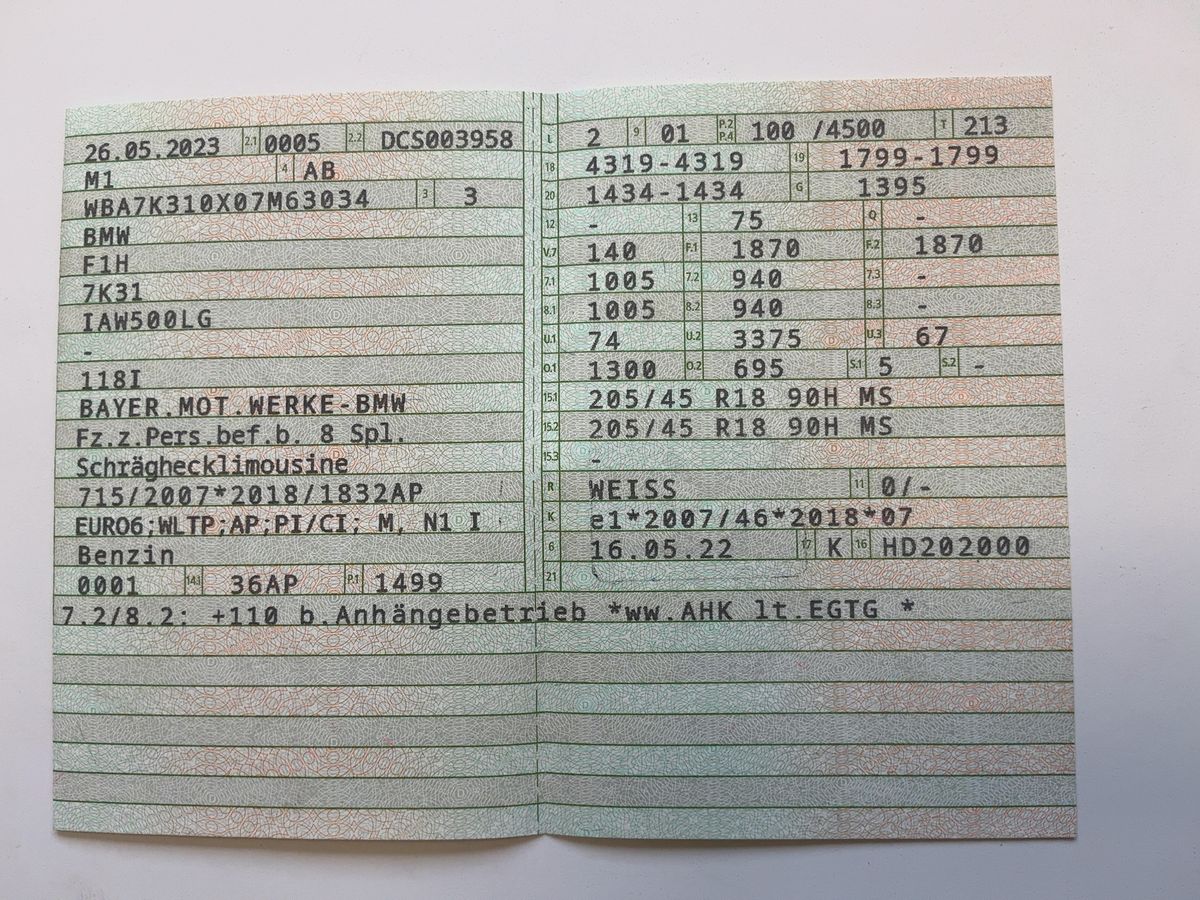 26.05.2023 2.1 0005 2.2 DCS003958
M1 4 AB
WBA7K310X07M63034 3 3
BMW
F1H
7K31
IAW500LG
-
118I
BAYER.MOT.WERKE-BMW
Fz.z.Pers.bef.b. 8 Spl.
Schräghecklimousine
715/2007*2018/1832AP
EURO6;WLTP;AP;PI/CI; M, N1 I
Benzin
0001 14.1 36AP P.1 1499
L 2 9 01 P.2 P.4 100 /4500 T 213
18 4319-4319 19 1799-1799
20 1434-1434 G 1395
12 - 13 75 Q -
V.7 140 F.1 1870 F.2 1870
7.1 1005 7.2 940 7.3 -
8.1 1005 8.2 940 8.3 -
U.1 74 U.2 3375 U.3 67
O.1 1300 O.2 695 S.1 5 S.2 -
15.1 205/45 R18 90H MS
15.2 205/45 R18 90H MS
15.3 -
R WEISS 11 0/-
K e1*2007/46*2018*07
6 16.05.22 17 K 16 HD202000
21
7.2/8.2: +110 b.Anhängebetrieb *ww.AHK lt.EGTG *